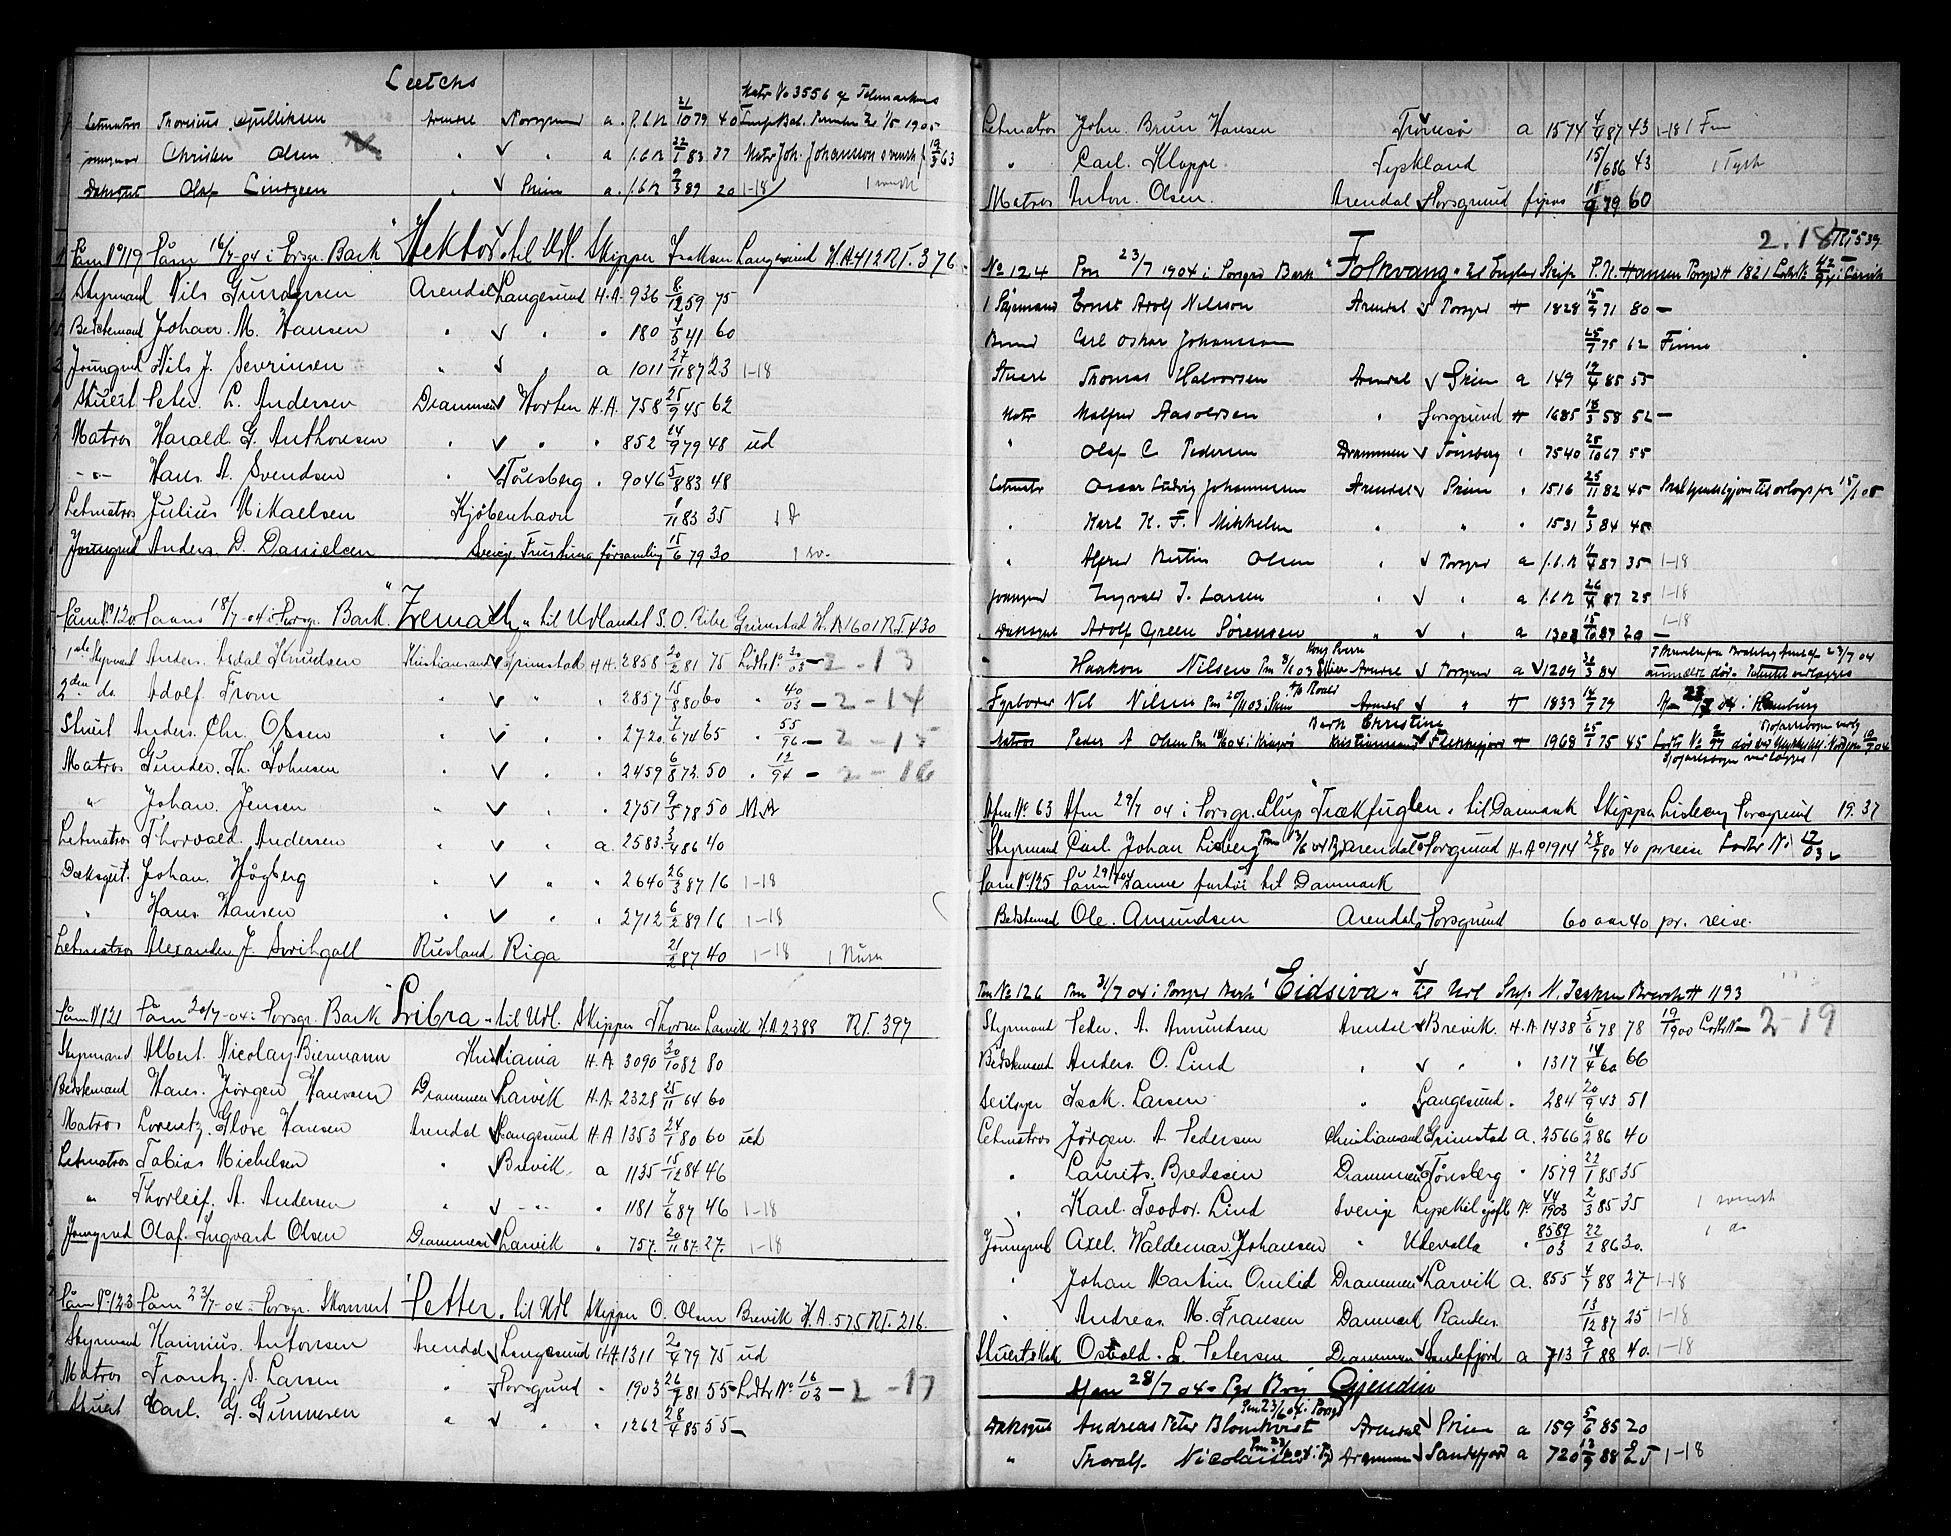 Leetchs
Matr No 3556 Telemarkens
Letmatros Thorsius Gulliksen Arendal Porsgrund a. f.6.n 21/10 79 40 1905
Jungmand Christen Olsen " a f.6.n 22/1 83 77 Matr Joh. Johansson svensk f 19/3 63
Dæksgut Olaf Lindgren " Skien a. f.6.n 9/3 89 20 1-18 1 svensk
Påm No 119 Påm 16/7-04 i Porsgr. Bark "Hektor" til Udl. Skipper Isaksen Langesund H.A. 412 RT. 376
Styrmand Nils Gundersen Arendal Langesund H.A. 936 8/12 59 75
Bedstemand Johan M. Hansen " " " 180 4/5 41 60
Joungmd Nils J. Severinsen " " a 1011 27/11 87 23 1-18
Stuert Peter L. Andersen Drammen Horten H.A. 758 25/9 45 62
Matros Harald G. Anthonsen " " " 852 14/9 79 48 ud
-"- Hans A. Svendsen " Tønsberg " 9046 5/8 83 48
Letmatros Julius Mikaelsen Kjøbenhavn 1/11 83 35 1 D
Joungmd Anders D. Danielsen Sverige forsamling 15/6 79 30 1 sv.
Påm No 120 Paam 18/7-04 i Porsgr. Bark "Zemach" til Udlandet S. O. Ribe Grimstad H.A. 1601 RT 430
1ste Styrmand Anders Asdal Knudsen Kristiansand Grimstad H.A. 2858 20/2 81 75 Lods No 20/03 - 2-13
2den do. Adolf From " " " 2857 15/8 80 60 " 40/03 - 2-14
Stuert Anders Chr. Olsen " " " 2720 7/6 74 65 " 55/96 - 2-15
Matros Gunder Th. Johnsen " " " 2459 6/8 72 50 " 12/94 - 2-16
" Johan Jensen " " 2751 9/5 78 50
Letmatros Thorvald Andersen " " a. 2583 3/4 86 40
Dæksgut. Johan Høgberg " " " 2640 26/3 87 16 1-18
" Hans Hansen " " " 2712 6/2 89 16 1-18
Letmatros Alexander J. Swihgall Rusland Riga 21/2 87 40 1-18 1 Russ
Påm N 121 Påm 20/7-04 i Porsgr. Bark "Libra" til Udl. Skipper Thorsen Larvik H.A. 2388 RT. 397
Styrmand Albert Nicolay Biermann Kristiania H.A. 3090 30/10 82 80
Bedstemand Hans Jørgen Hanssen Drammen Larvik H.A. 2328 25/11 64 60
Matros Lorentz Glove Hansen Arendal Langesund H.A 1353 24/1 80 60 ud
Letmatros Tobias Michelsen " Brevik a 1135 15/12 84 46
" Thorleif A. Andersen " -"- " 1181 7/6 87 46 1-18
Joungmd Olaf Ingvard Olsen Drammen Larvik " 757 20/11 87 27 1-18
Påm No 123 Påm 23/7-04 i Porsgr. Skonnert "Petter" til Udl Skipper O. Olsen Brevik H.A. 575 RT. 216.
Styrmand Karinius Antonsen Arendal Langesund H.A. 1311 20/4 79 75 ud
Matros Frantz S. Larsen " Porsgrund " 1903 26/9 81 55 Lods No 16/03 - 2-17
Stuert Carl G. Gunnersen " " 1262 28/4 85 55 -
Letmatros John Brun Hansen Tromsø a 1574 4/9 87 43 1-18 1 Fin
" Carl Kloppe Tyskland 15/6 86 43 1 Tysk
Matros Anton Olsen Arendal Porsgrund 18/9 79 60
2.18 RT 539
No 124 Pm 23/7 1904 i Porsgrd Bark "Folkvang" til Skip P.N. Hansen Porsgr H 1821
1 Styrmand Ernst Adolf Nilsson Arendal Porsgrd H 1828 15/9 71 80 -
Carl Oskar Johansson 25/7 75 62 Finne
Stuert Thomas Halvorsen Arendal Skien a 149 19/4 85 55
Matr Malfred Aasoldsen " Porsgrund H 1685 18/3 58 52 -
" Olaf C Pedersen Drammen Tønsberg " 7540 25/10 67 55
Letmatr Oscar Ludvig Johannesen Arendal Skien " 1516 25/11 82 45
" Karl K. F. Mikkelsen " " " 1531 2/3 84 45
" Alfred Kristin Olsen " Porsgrd a f.6.n 4/4 87 35 1-18
Joungmd Ingvald J. Larsen " " a f.6.n 26/4 87 25 1-18
Dæksgut Adolf Green Sørensen " " a 1308 15/10 87 20 1-18
" Haakon Nilsen Arendal Porsgrd a 1209 30/3 84
Fyrbøder Nils Nilsen Pm 20/11 03 i Skien Arendal " H 1833 14/7 79 Hamburg
Bark Christine
Matros Peder A Olsen Pm 18/6 04 i Kragerø Kristiansand Flekkefjord H 1968 25/1 75 45
Afm No 63 Afm 29/7 04 i Porsgr. Slup "Trækfuglen" til Danmark Skipper Lisberg Porsgrund 19.37
Styrmand Carl Johan Lisberg Arendal Porsgrund H.A. 1914 28/7 80 40 pr reise Lods No 12/03
Paam No 125 Påm 29/7 04 samme fartøi til Danmark
Bedstemd Ole Amundsen Arendal Porsgrund 60 aar 40 pr. reise
Pm No 126 Pm 31/7 04 i Porsgrd Bark "Eidsiva" til Udl Brevik H 1193
Styrmand Peder A. Amundsen Arendal Brevik H.A. 1438 5/6 78 78 19/1900 Lods No 2-19
Bedstemand Anders O. Lind " " 1317 14/4 60 66
Seilsyer Isak Larsen " Langesund " 284 20/9 43 51
Letmatros Jørgen A Pedersen Christiansand Grimstad a. 2566 6/2 86 40
" Laurits Bredesen Drammen Tønsberg " 1579 22/1 85 35
" Karl Teodor Lind Sverige Lysekil No 44/1903 2/3 85 35 1 svensk
Joungmd Axel Waldemar Johansen " Udevalla " 8589/03 22/2 86 30. 1 do
" Johan Martin Omlid Drammen Larvik a. 855 4/9 88 27 1-18
" Andreas M. Fransen Danmark Randers 13/12 87 25 1-18
Stuert & Kok Osvald L. Petersen Drammen Sandefjord a 713 9/1 88 40 1-18
Afm 28/7 04 Brig Gjendin
Pm 23/6 04 i Porsgr
Dæksgut Andreas Peter Blomkvist Arendal Skien a 159 5/6 85 20
" Thoralf Nicolaisen Drammen Sandefjord a 720 12/9 88 25 1-18